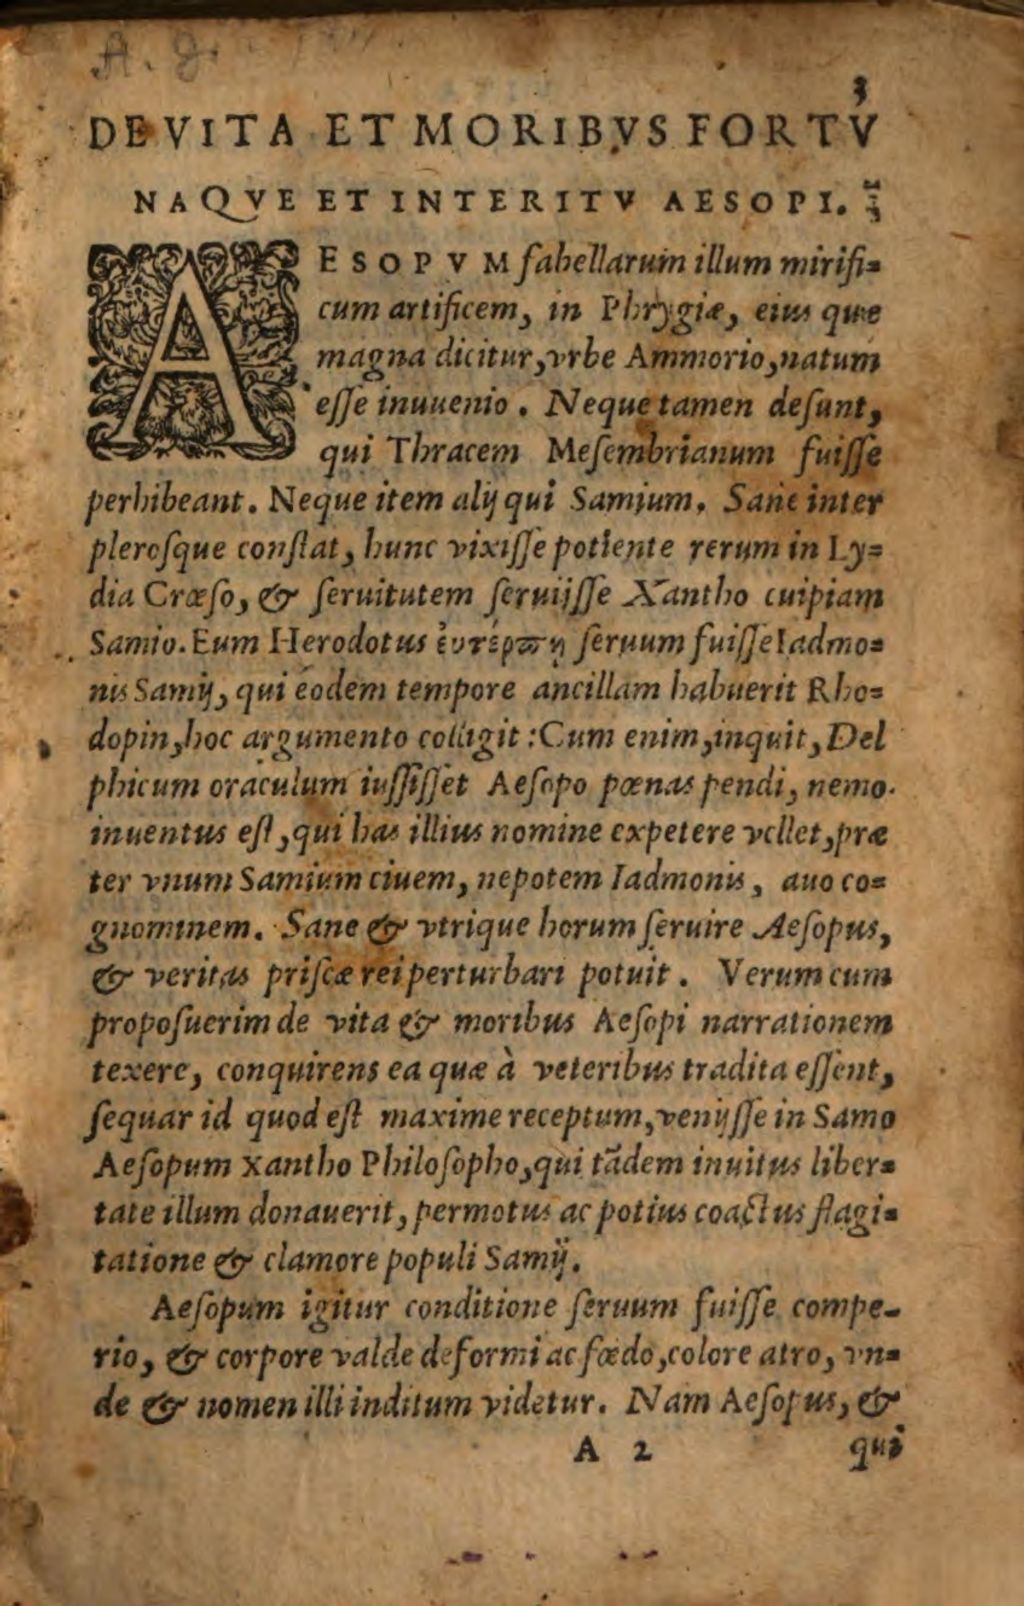 A. J.
3
DE VITA ET MORIBVS FORTV
NAQVE ET INTERITV AESOPI.
AESOPVM fabellarum illum mirifi=
cum artificem, in Phrygiæ, eius quæ
magna dicitur, vrbe Ammorio, natum
eſſe inuuenio. Neque tamen deſunt,
qui Thracem Meſembrianum fuiſſe
perhibeant. Neque item alij qui Samium. Sane inter
pleroſque conſtat, hunc vixiſſe potiente rerum in Ly=
dia Crœſo, & ſeruitutem ſeruijſſe Xantho cuipiam
Samio. Eum Herodotus ἐυτέρπη ſeruum fuiſſe Iadmo=
nis Samij, qui eodem tempore ancillam habuerit Rho=
dopin, hoc argumento colligit: Cum enim, inquit, Del
phicum oraculum iuſſiſſet Aeſopo pœnas pendi, nemo
inuentus eſt, qui has illius nomine expetere vellet, præ
ter vnum Samium ciuem, nepotem Iadmonis, auo co=
gnominem. Sane & vtrique horum ſeruire Aeſopus,
& veritas priſcæ rei perturbari potuit. Verum cum
propoſuerim de vita & moribus Aeſopi narrationem
texere, conquirens ea quæ à veteribus tradita eſſent,
ſequar id quod eſt maxime receptum, venijſſe in Samo
Aeſopum Xantho Philoſopho, qui tãdem inuitus liber=
tate illum donauerit, permotus ac potius coactus flagi=
tatione & clamore populi Samij.
Aeſopum igitur conditione ſeruum fuiſſe compe-
rio, & corpore valde deformi ac fœdo, colore atro, vn=
de & nomen illi inditum videtur. Nam Aeſopus, &
A 2 qui